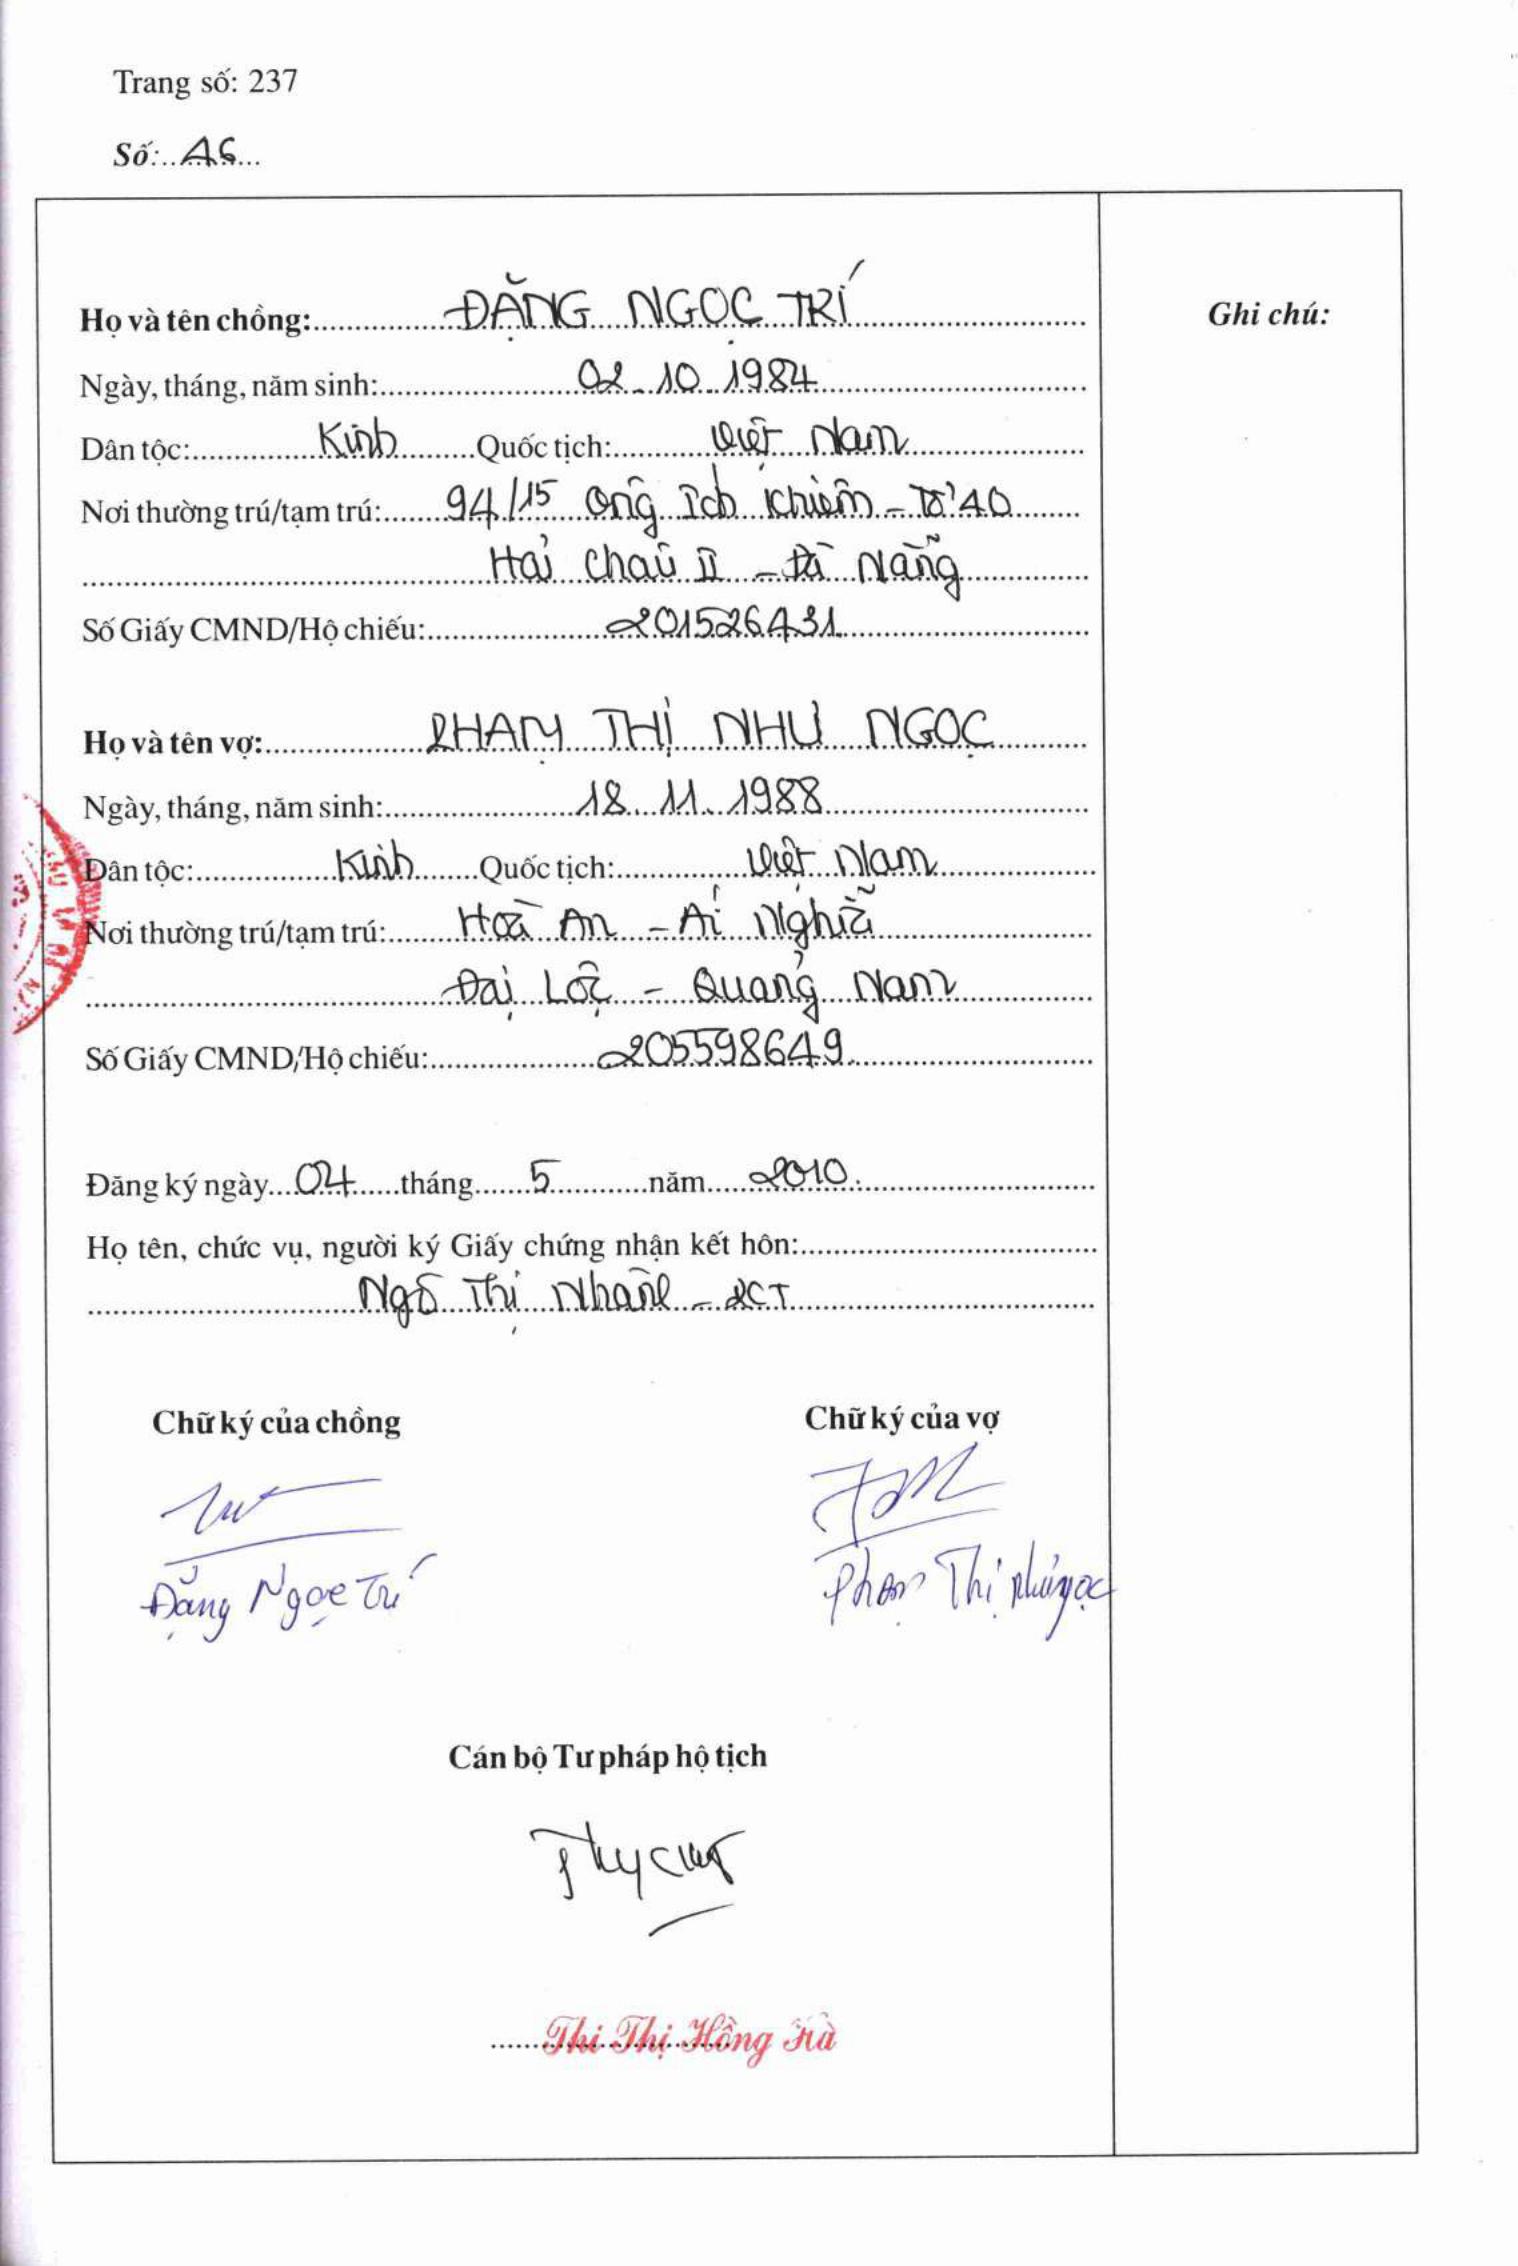 Trang số: 237
Số: 46
Họ và tên chồng: ĐẶNG NGỌC TRÍ
Ghi chú:
Ngày, tháng, năm sinh: 02.10.1984
Dân tộc: Kinh Quốc tịch: Việt Nam
Nơi thường trú/tạm trú: 94/15 Ông Ích Khiêm - Tổ 40
Hải Châu II - Đà Nẵng
Số Giấy CMND/Hộ chiếu: 201526431
Họ và tên vợ: PHẠM THỊ NHƯ NGỌC
Ngày, tháng, năm sinh: 18.11.1988
Dân tộc: Kinh Quốc tịch: Việt Nam
Nơi thường trú/tạm trú: Hoà An - Ái Nghĩa
Đại Lộc - Quảng Nam
Số Giấy CMND/Hộ chiếu: 205598649
Đăng ký ngày 04 tháng 5 năm 2010
Họ tên, chức vụ, người ký Giấy chứng nhận kết hôn:
Ngô Thị Nhanh - PCT
Chữ ký của chồng Chữ ký của vợ
Đặng Ngọc Trí Phạm Thị Như Ngọc
Cán bộ Tư pháp hộ tịch
Thi Thị Hồng Hà